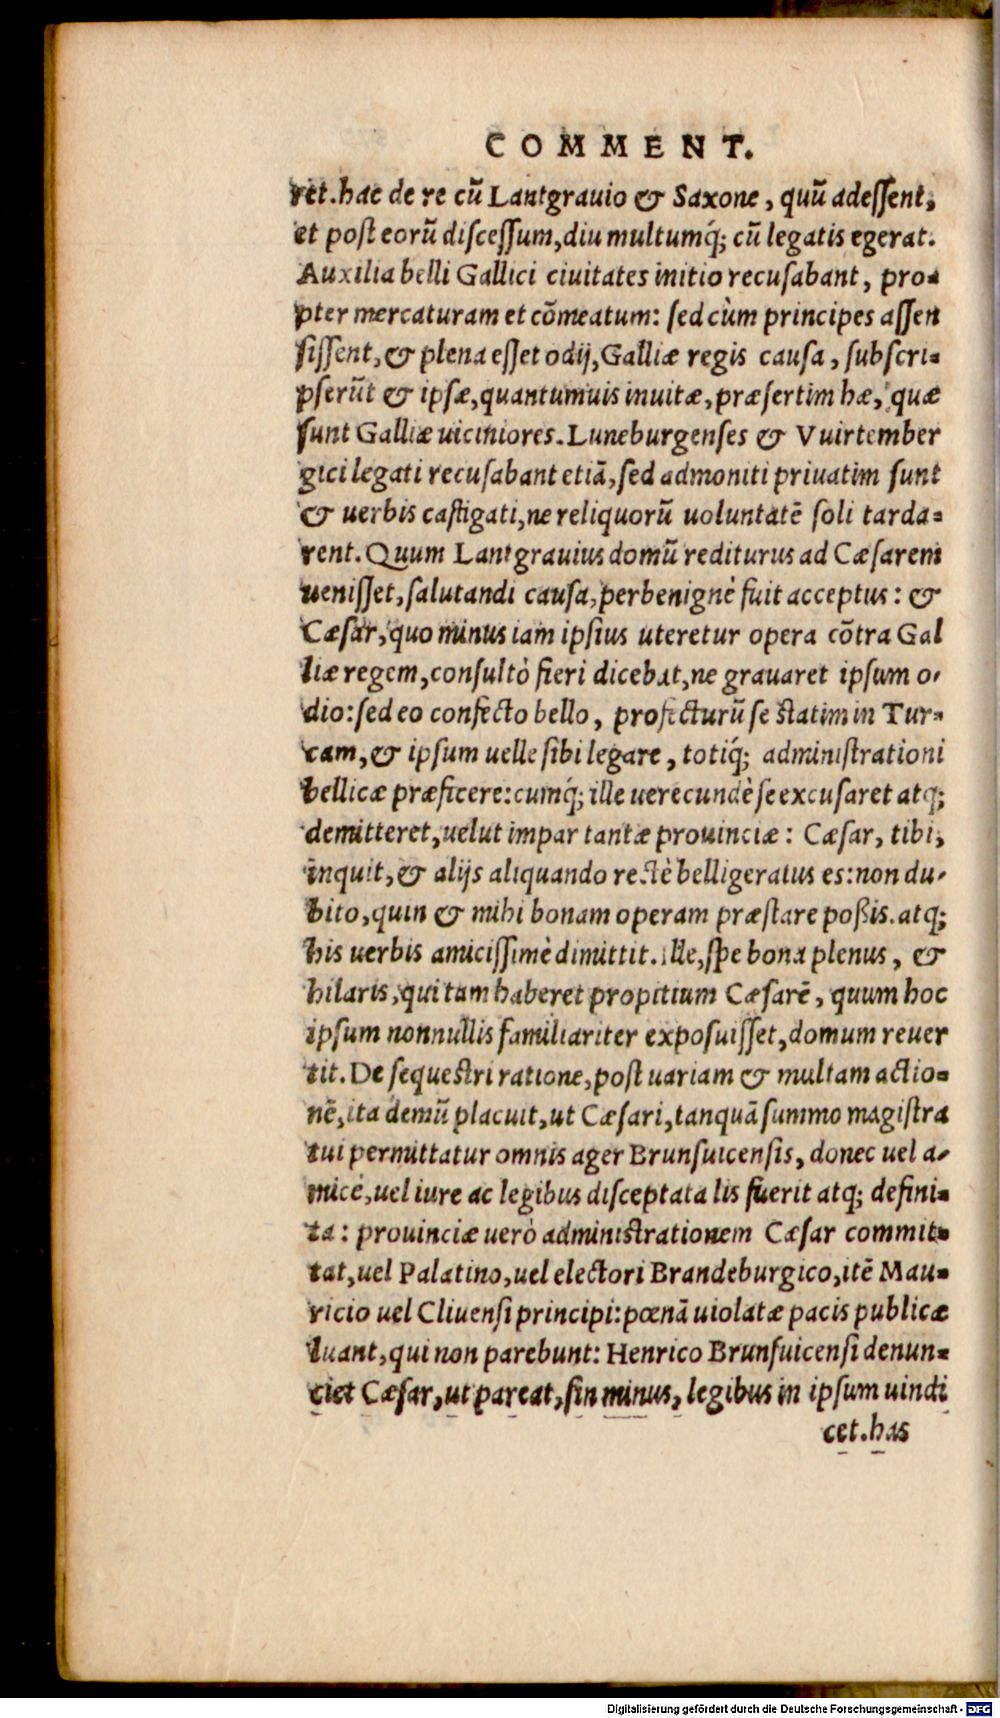 COMMENT.
ret. hac de re cũ Lantgrauio & Saxone, quũ adeſſent,
et poſt eorũ diſceſſum, diu multumq́; cũ legatis egerat.
Auxilia belli Gallici ciuitates initio recuſabant, pro-
pter mercaturam et cõmeatum: ſed cùm principes aſſen
ſiſſent, & plena eſſet odij, Galliæ regis cauſa, ſubſcri-
pſerũt & ipſæ, quantumuis inuitæ, præſertim hæ, quæ
ſunt Galliæ uiciniores. Luneburgenſes & Vuirtember
gici legati recuſabant etiã, ſed admoniti priuatim ſunt
& uerbis caſtigati, ne reliquorũ uoluntatẽ ſoli tarda-
rent. Quum Lantgrauius domũ rediturus ad Cæſarem
ueniſſet, ſalutandi cauſa, perbenignè fuit acceptus: &
Cæſar, quo minus iam ipſius uteretur opera cõtra Gal
liæ regem, conſultò fieri dicebat, ne grauaret ipſum o-
dio: ſed eo confecto bello, profecturũ ſe ſtatim in Tur-
cam, & ipſum uelle ſibi legare, totiq́; adminiſtrationi
bellicæ præficere: cumq́; ille uerecundè ſe excuſaret atq;
demitteret, uelut impar tantæ prouinciæ: Cæſar, tibi,
inquit, & alijs aliquando rectè belligeratus es: non du-
bito, quin & mihi bonam operam præſtare poßis. atq;
his uerbis amiciſſimè dimittit. Ille, ſpe bona plenus, &
hilaris, qui tam haberet propitium Cæſarẽ, quum hoc
ipſum nonnullis familiariter expoſuiſſet, domum reuer
tit. De ſequeſtri ratione, poſt uariam & multam actio-
nẽ, ita demũ placuit, ut Cæſari, tanquã ſummo magiſtra
tui permittatur omnis ager Brunſuicenſis, donec uel a-
micè, uel iure ac legibus diſceptata lis fuerit atq; defini-
ta: prouinciæ uerò adminiſtrationem Cæſar commit-
tat, uel Palatino, uel electori Brandeburgico, itẽ Mau-
ricio uel Cliuenſi principi: pœnã uiolatæ pacis publicæ
luant, qui non parebunt: Henrico Brunſuicenſi denun-
ciet Cæſar, ut pareat, ſin minus, legibus in ipſum uindi
cet. has
Digitalisierung gefördert durch die Deutsche Forschungsgemeinschaft - DFG